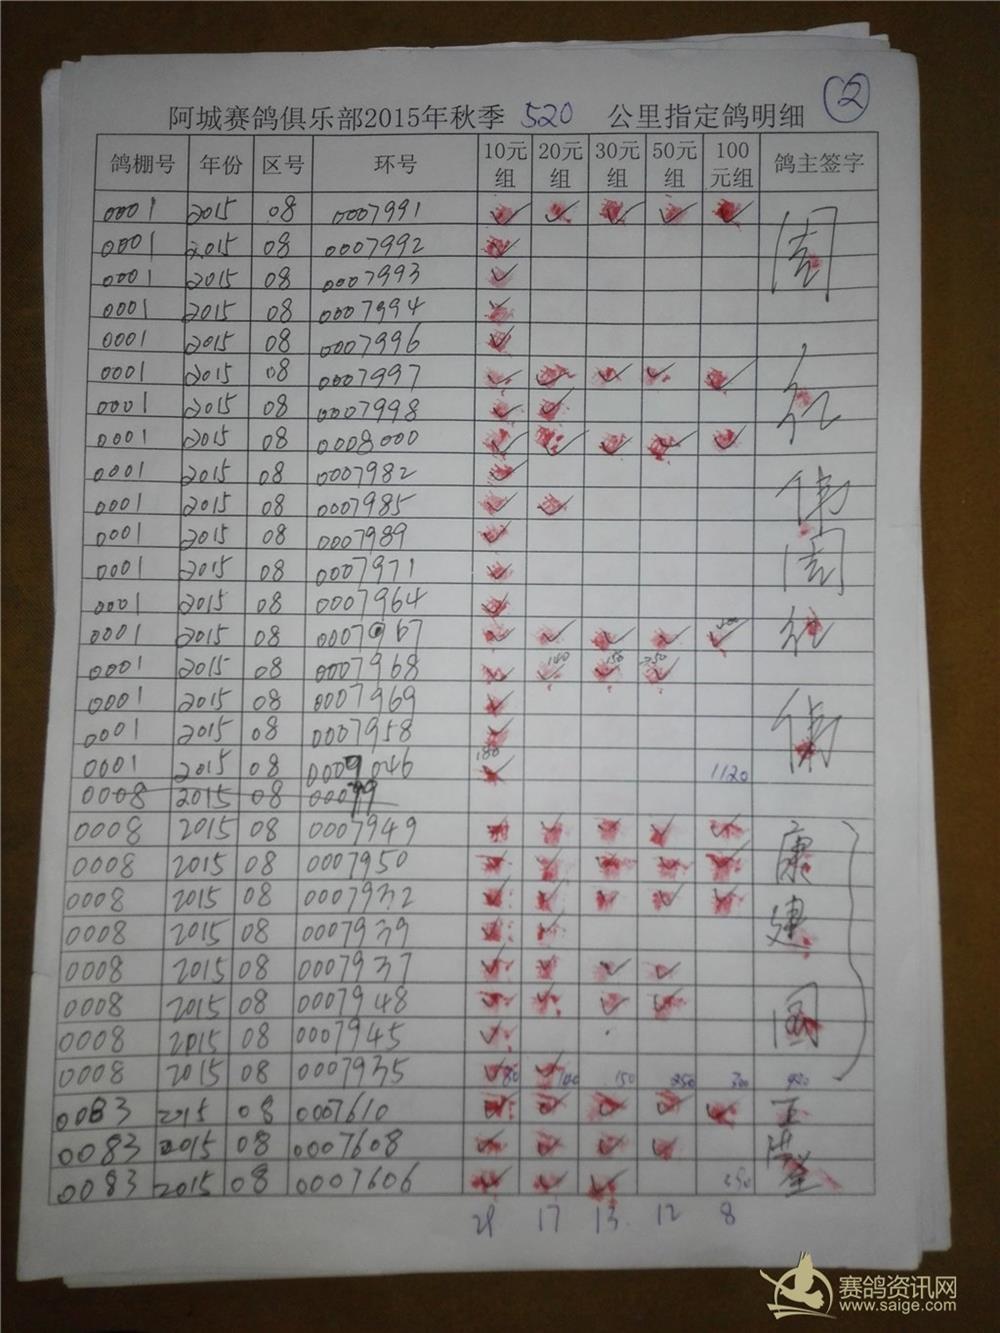 ②
阿城赛鸽俱乐部2015年秋季 520 公里指定鸽明细
鸽棚号 年份 区号 环号 10元组 20元组 30元组 50元组 100元组 鸽主签字
0001 2015 08 0007991 ✓ ✓ ✓ ✓ ✓ 周
0001 2015 08 0007992 ✓
0001 2015 08 0007993 ✓
0001 2015 08 0007994 ✓
0001 2015 08 0007996 ✓ 红
0001 2015 08 0007997 ✓ ✓ ✓ ✓ ✓
0001 2015 08 0007998 ✓ ✓
0001 2015 08 0008000 ✓ ✓ ✓ ✓ ✓
0001 2015 08 0007982 ✓ 伟
0001 2015 08 0007985 ✓ ✓
0001 2015 08 0007989 ✓ 周
0001 2015 08 0007971 ✓
0001 2015 08 0007964 ✓ 红
0001 2015 08 0007967 ✓ ✓ ✓ ✓ ✓
0001 2015 08 0007968 ✓ ✓ 140 ✓ 150 ✓ 250
0001 2015 08 0007969 ✓ 伟
0001 2015 08 0007958 ✓
0001 2015 08 0009046 180 ✓ 1120
0008 2015 08 00079
0008 2015 08 0007949 ✓ ✓ ✓ ✓ ✓ 康
0008 2015 08 0007950 ✓ ✓ ✓ ✓ ✓
0008 2015 08 0007932 ✓ ✓ ✓ ✓ ✓ 建
0008 2015 08 0007939 ✓ ✓
0008 2015 08 0007937 ✓ ✓ ✓ ✓
0008 2015 08 0007948 ✓ ✓ ✓ ✓ 国
0008 2015 08 0007945 ✓
0008 2015 08 0007935 ✓ 80 ✓ 140 150 250 300 920
0083 2015 08 0007610 ✓ ✓ ✓ ✓ ✓ 王
0083 2015 08 0007608 ✓ ✓ ✓ ✓
0083 2015 08 0007606 ✓ ✓ ✓ 350
29 17 13 12 8
赛鸽资讯网
www.saige.com